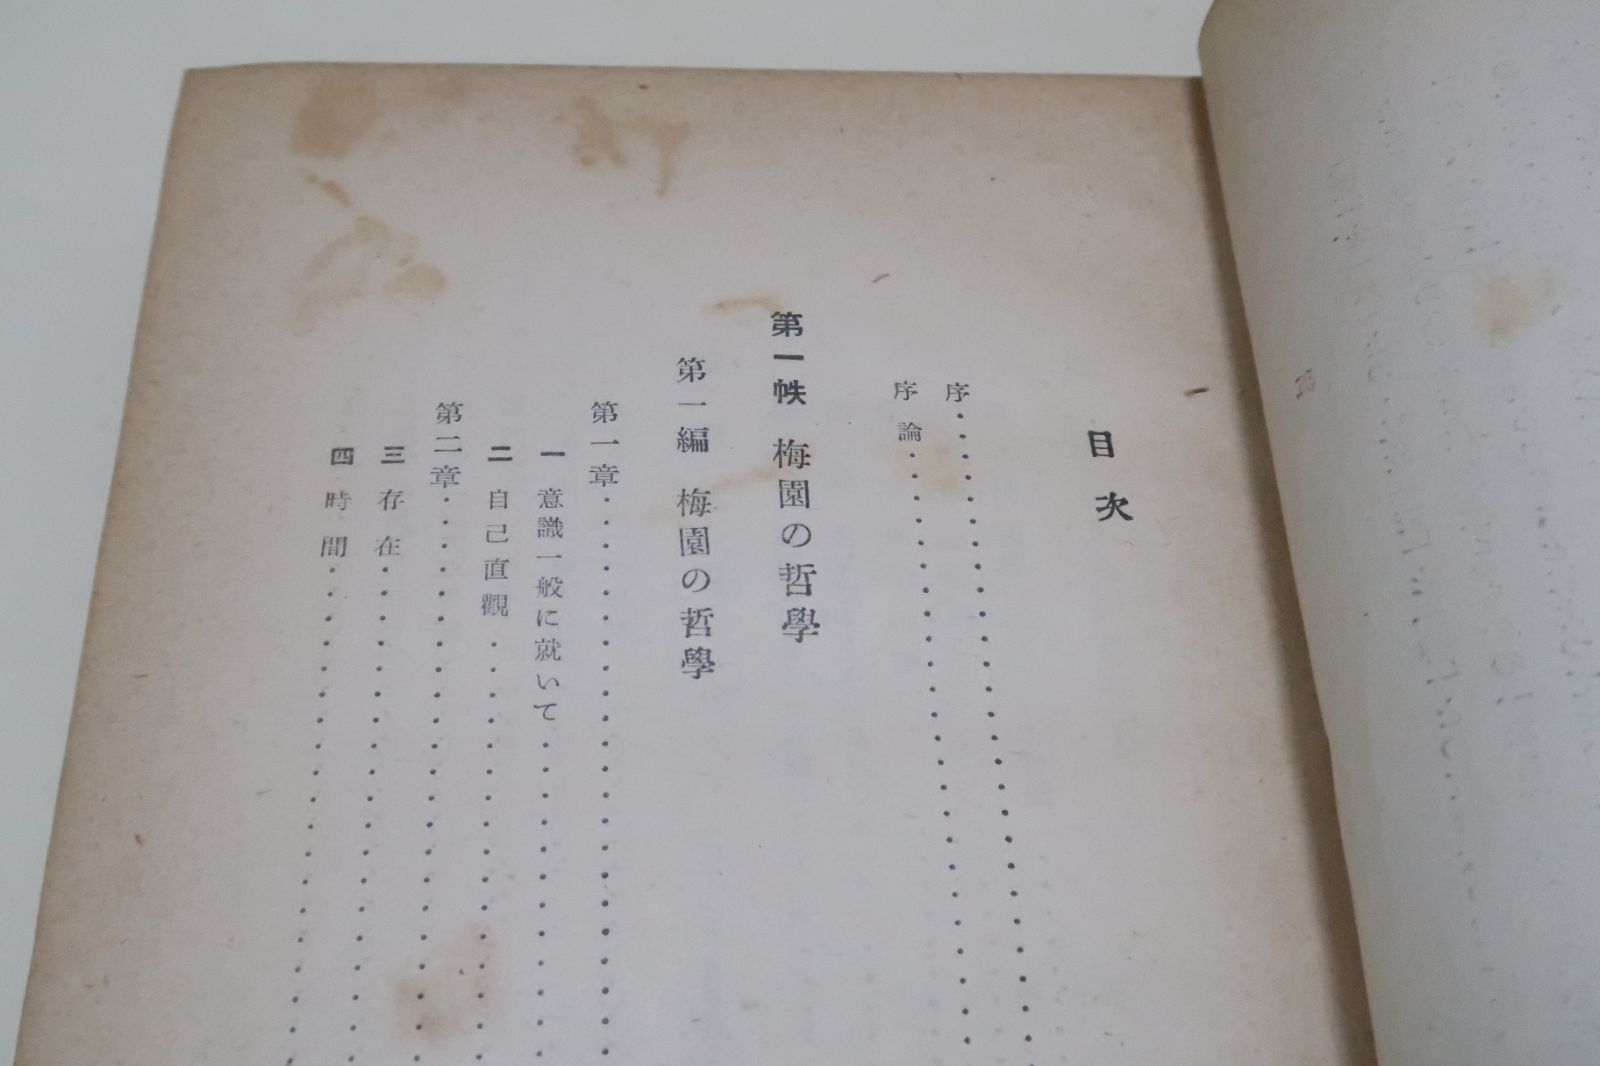 目次
序
序論
第一帙 梅園の哲學
第一編 梅園の哲學
第一章
一 意識一般に就いて
二 自己直觀
第二章
三 存在
四 時間